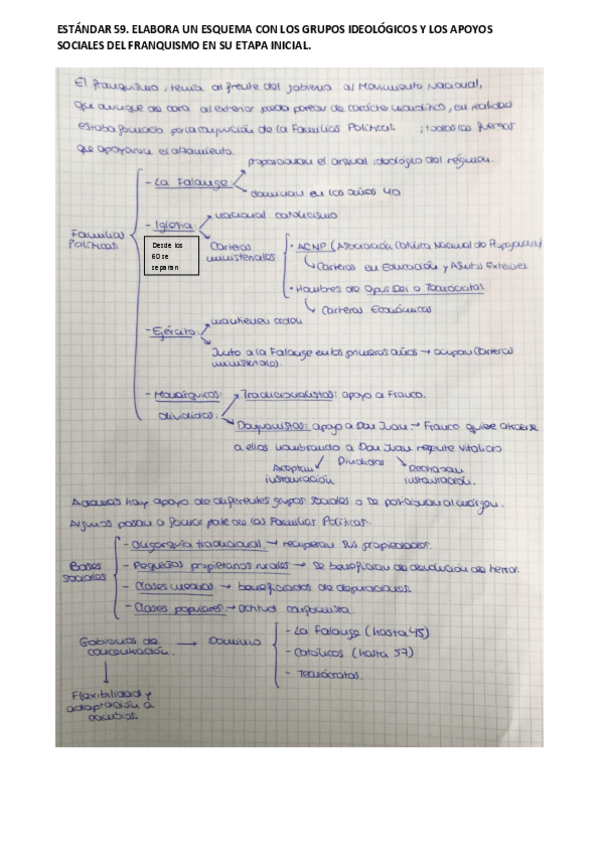 ESTÁNDAR 59. ELABORA UN ESQUEMA CON LOS GRUPOS IDEOLÓGICOS Y LOS APOYOS
SOCIALES DEL FRANQUISMO EN SU ETAPA INICIAL.
El franquismo, tenía al frente del gobierno al Movimiento Nacional,
que aunque de cara al exterior pueda parecer de carácter monolítico, en realidad
estaba formado por la conjunción de la Familias Políticas ; todas las fuerzas
que apoyaron el alzamiento.
proporcionan el arsenal ideológico del régimen.
- La Falange
dominan en los años 40
nacional catolicismo
- Iglesia
Familias
Políticas
Desde los
60 se
separan
Carteras
ministeriales
· ACNP (Asociación Católica Nacional de Propagandistas)
Carteras en Educación y Asuntos Exteriores
· Hombres de Opus Dei o Tecnócratas
Carteras Económicas
mantienen orden
- Ejército
Junto a la Falange en los primeros años → ocupan (Carteras
ministeriales).
- Monárquicos: Tradicionalistas: apoyo a Franco.
divididos:
Donjuanistas: apoyo a Don Juan → Franco quiere atraerse
a ellos nombrando a Don Juan regente vitalicio
Divididos
Aceptan
instauración
Rechazan
instauración.
Además hay apoyo de diferentes grupos sociales o se posicionan al margen.
Algunos pasan a formar parte de las Familias Políticas.
Bases
sociales
- Oligarquía tradicional → recuperan sus propiedades.
- Pequeños propietarios rurales → Se benefician de devolución de tierras.
- Clases medias → beneficiados de depuraciones.
- Clases populares → actitud conformista.
Gobiernos de
concentración. → Dominio
- La Falange (hasta 45)
- Católicos (hasta 57)
- Tecnócratas.
Flexibilidad y
adaptación a
cambios.